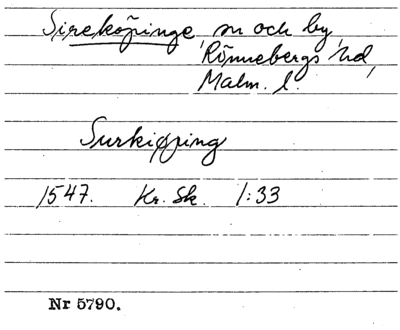 Sireköpinge, sn och by,
Rönnebergs hd,
Malm. l.
Surkiøping
1547. Kr. Sk. 1:33
Nr 5790.